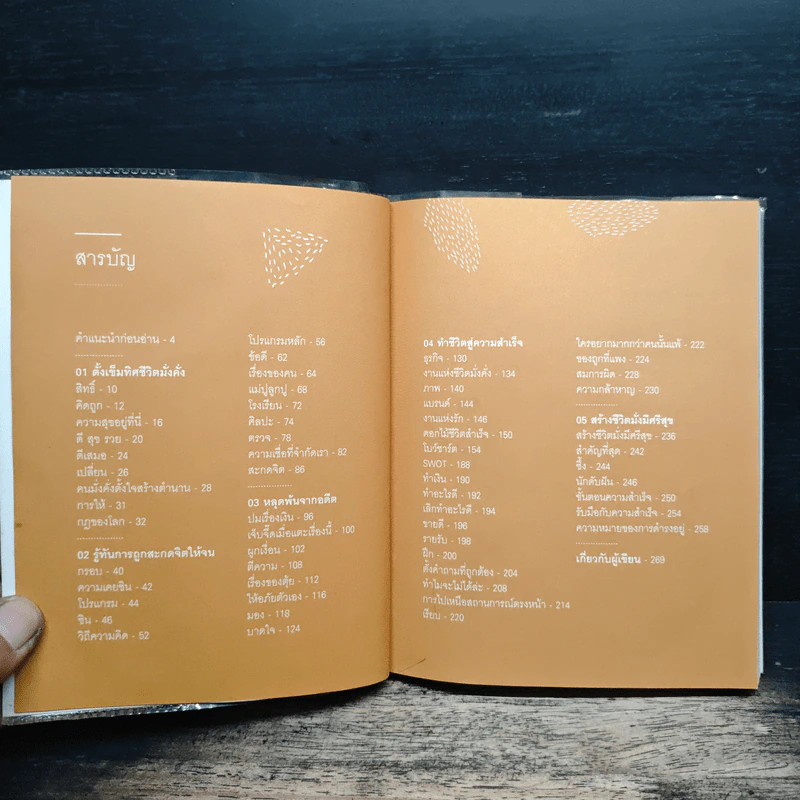 สารบัญ
คำแนะนำก่อนอ่าน - 4
01 ตั้งเข็มทิศชีวิตมั่งคั่ง
สิทธิ์ - 10
คิดถูก - 12
ความสุขอยู่ที่นี่ - 16
ดี สุข รวย - 20
ดีเสมอ - 24
เปลี่ยน - 26
คนมั่งคั่งตั้งใจสร้างตำนาน - 28
การให้ - 31
กฎของโลก - 32
02 รู้ทันการถูกสะกดจิตให้จน
กรอบ - 40
ความเคยชิน - 42
โปรแกรม - 44
ชิน - 46
วิถีความคิด - 52
โปรแกรมหลัก - 56
ข้อดี - 62
เรื่องของคน - 64
แม่ปูลูกปู - 68
โรงเรียน - 72
ศิลปะ - 74
ตรวจ - 78
ความเชื่อที่จำกัดเรา - 82
สะกดจิต - 86
03 หลุดพ้นจากอดีต
ปมเรื่องเงิน - 96
เจ็บจี๊ดเมื่อแตะเรื่องนี้ - 100
ผูกเงื่อน - 102
ตีความ - 108
เรื่องของตุ้ย - 112
ให้อภัยตัวเอง - 116
มอง - 118
บาดใจ - 124
04 ทำชีวิตสู่ความสำเร็จ
ธุรกิจ - 130
งานแห่งชีวิตมั่งคั่ง - 134
ภาพ - 140
แบรนด์ - 144
งานแห่งรัก - 146
ดอกไม้ชีวิตสำเร็จ - 150
โบว์ชาร์ต - 154
SWOT - 188
ทำเงิน - 190
ทำอะไรดี - 192
เลิกทำอะไรดี - 194
ขายดี - 196
รายรับ - 198
ฝึก - 200
ตั้งคำถามที่ถูกต้อง - 204
ทำไมจะไม่ได้ล่ะ - 208
การไปเหนือสถานการณ์ตรงหน้า - 214
เรียบ - 220
ใครอยากมากกว่าคนนั้นแพ้ - 222
ของถูกที่แพง - 224
สมการผิด - 228
ความกล้าหาญ - 230
05 สร้างชีวิตมั่งมีศรีสุข
สร้างชีวิตมั่งมีศรีสุข - 236
สำคัญที่สุด - 242
ซึ้ง - 244
นักดับฝัน - 246
ขั้นตอนความสำเร็จ - 250
รับมือกับความสำเร็จ - 254
ความหมายของการดำรงอยู่ - 258
เกี่ยวกับผู้เขียน - 269